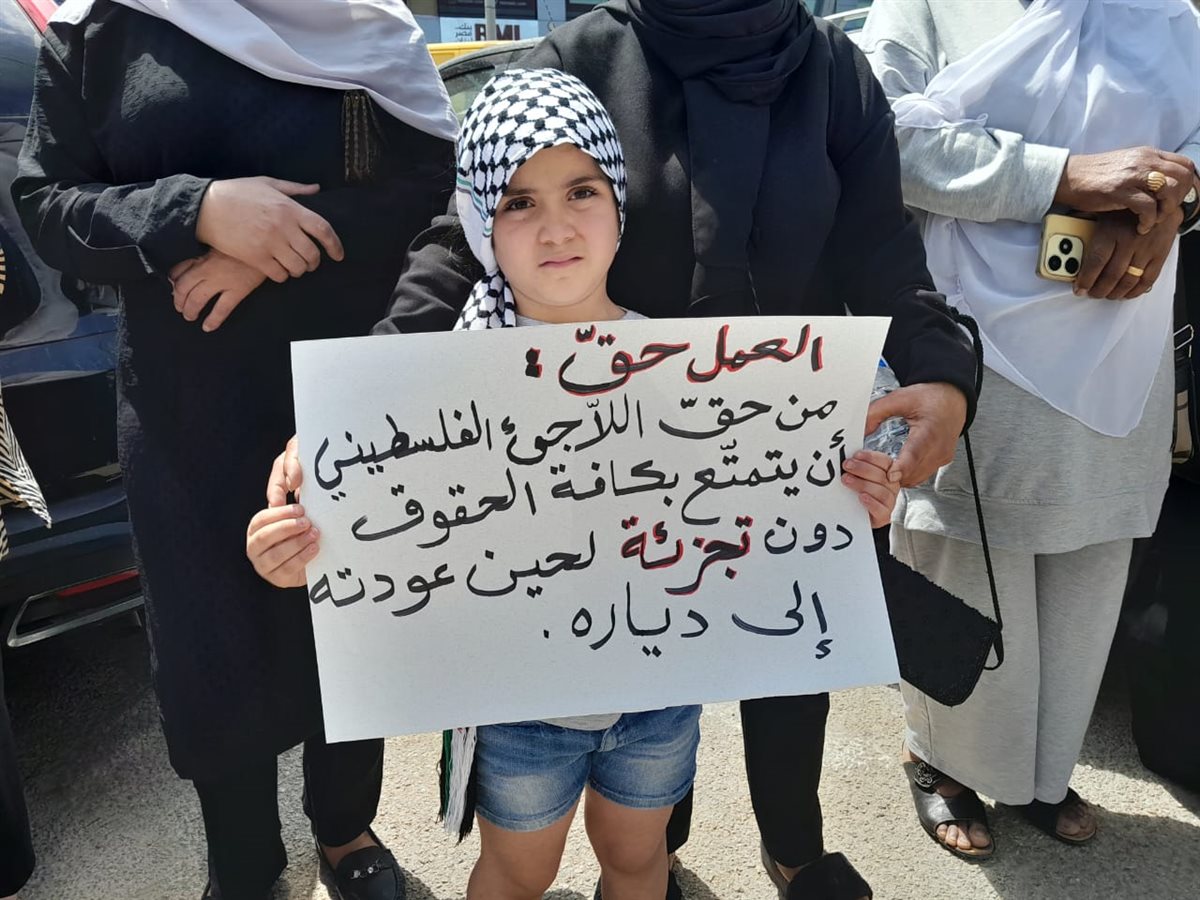 بنك
BML
العمل حقّ :
من حقّ اللاّجئ الفلسطيني
أن يتمتّع بكافة الحقوق
دون تجزئة لحين عودته
إلى دياره .